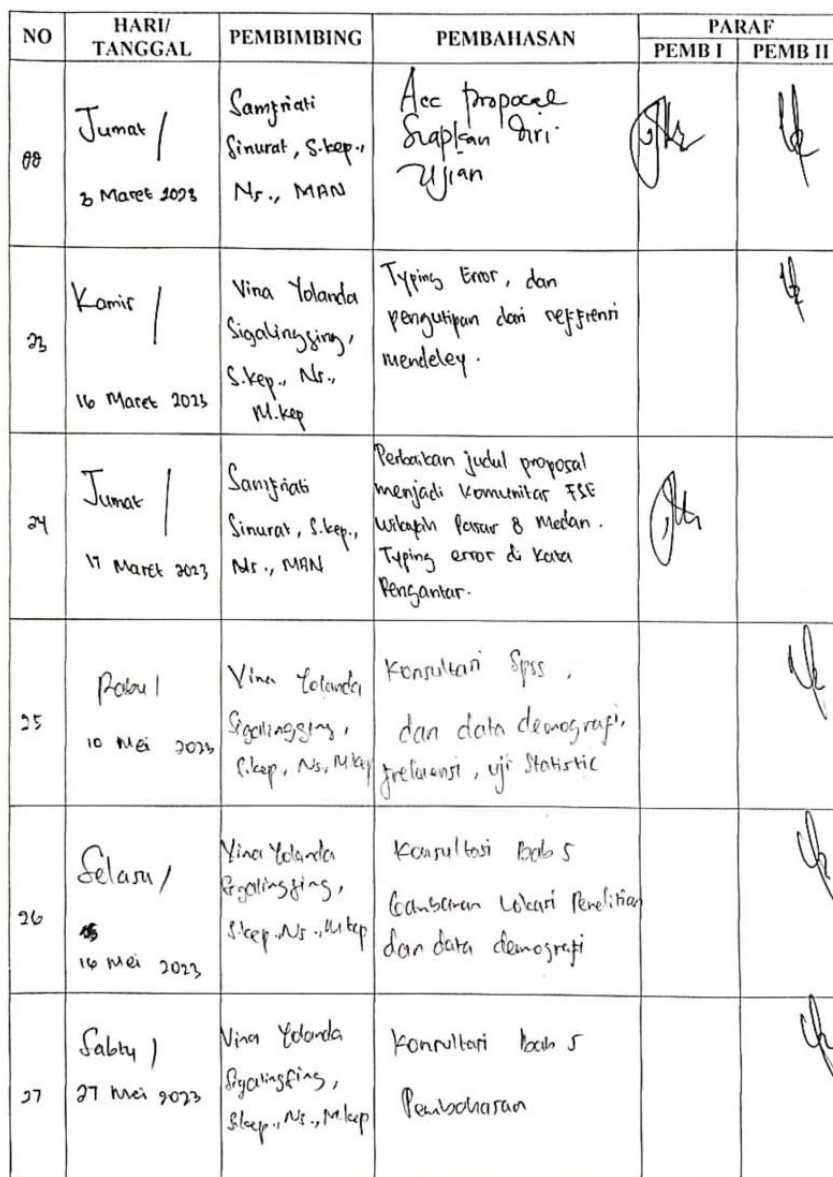 NO HARI/ TANGGAL PEMBIMBING PEMBAHASAN PARAF
PEMB I PEMB II
Jumat /
3 Maret 2023
Samfriati
Sinurat, S.kep.,
Ns., MAN
Acc proposal
Siapkan diri
Ujian
23
Kamis /
16 Maret 2023
Vina Yolanda
Sigalingging,
S.kep., Ns.,
M.kep
Typing Error, dan
pengutipan dari
mendeley.
24
Jumat /
17 Maret 2023
Samfriati
Sinurat, S.kep.,
Ns., MAN
Perbaikan judul proposal
menjadi Komunitas FSE
Wilayah Pasar 8 Medan.
Typing error di Kata
Pengantar.
25
Rabu /
10 Mei 2023
Vina Yolanda
Sigalingging,
S.kep, Ns, M.kep
Konsultasi Spss,
dan data demografi,
frekuensi, uji Statistic
26
Selasa /
16 Mei 2023
Vina Yolanda
Sigalingging,
S.kep., Ns., M.kep
Konsultasi Bab 5
Gambaran Lokasi Penelitian
dan data demografi
27
Sabtu /
27 Mei 2023
Vina Yolanda
Sigalingging,
S.kep., Ns., M.kep
Konsultasi Bab 5
Pembahasan